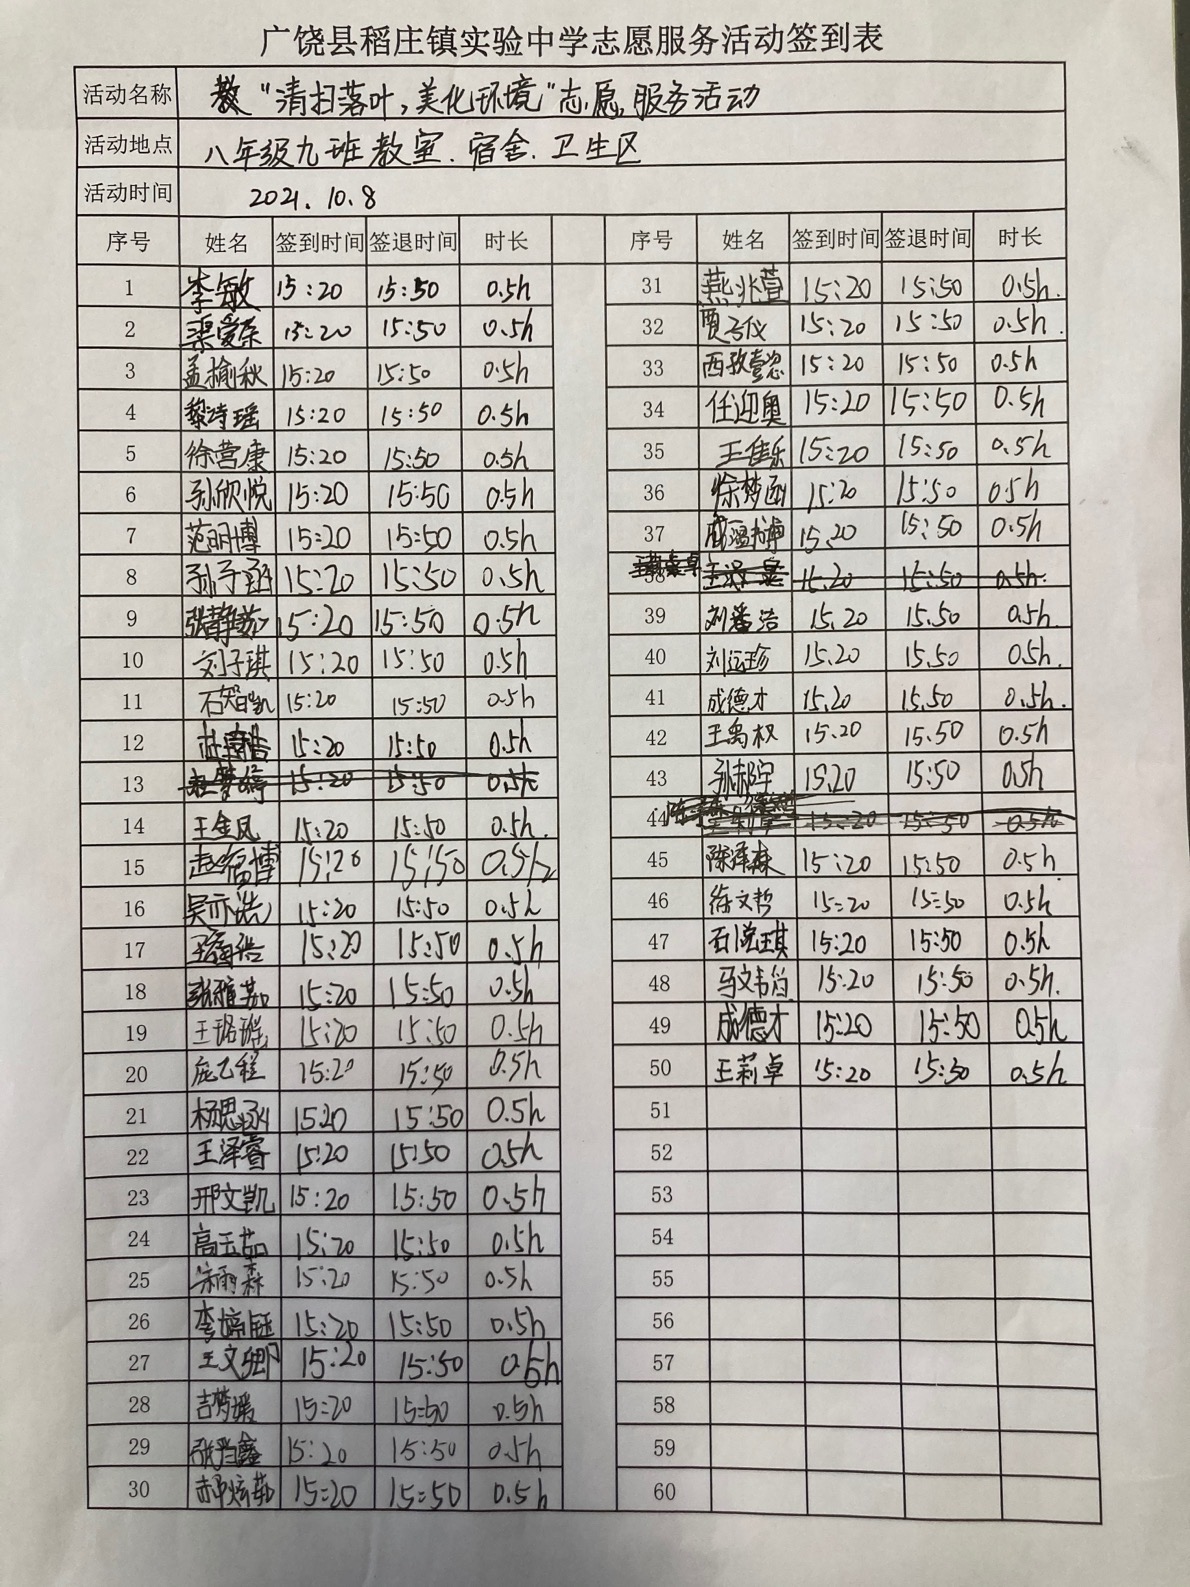 广饶县稻庄镇实验中学志愿服务活动签到表
活动名称 "清扫落叶,美化环境"志愿服务活动
活动地点 八年级九班教室.宿舍.卫生区
活动时间 2021.10.8
序号 姓名 签到时间 签退时间 时长 序号 姓名 签到时间 签退时间 时长
1 李敏 15:20 15:50 0.5h 31 燕兆萱 15:20 15:50 0.5h.
2 15:20 15:50 0.5h 32 15:20 15:50 0.5h.
3 孟榆秋 15:20 15:50 0.5h 33 西孜懿恣 15:20 15:50 0.5h
4 黎诗瑶 15:20 15:50 0.5h 34 任迎奥 15:20 15:50 0.5h
5 徐营康 15:20 15:50 0.5h 35 王佳乐 15:20 15:50 0.5h
6 孙欣悦 15:20 15:50 0.5h 36 徐梦函 15:20 15:50 0.5h
7 范明博 15:20 15:50 0.5h 37 15.20 15:50 0.5h
8 孙子涵 15:20 15:50 0.5h 38 15.20 15:50 0.5h.
9 张静茹 15:20 15:50 0.5h 39 15.20 15.50 0.5h.
10 刘子琪 15:20 15:50 0.5h 40 刘运珍 15.20 15.50 0.5h.
11 石智凯 15:20 15:50 0.5h 41 成德才 15.20 15.50 0.5h.
12 15:20 15:50 0.5h 42 王禹权 15.20 15.50 0.5h
13 15:20 15:50 0.5h 43 15.20 15:50 0.5h
14 王金凤 15:20 15:50 0.5h. 44 15:20 15:50 0.5h
15 赵福博 15:20 15:50 0.5h 45 陈泽森 15:20 15:50 0.5h
16 吴亦浩 15:20 15:50 0.5h 46 徐文哲 15:20 15:50 0.5h
17 15:20 15:50 0.5h 47 石悦琪 15:20 15:50 0.5h
18 张雅茹 15:20 15:50 0.5h 48 15:20 15:50 0.5h.
19 王珞瑶 15:20 15:50 0.5h 49 成德才 15:20 15:50 0.5h
20 庞乙程 15:20 15:50 0.5h 50 王莉卓 15:20 15:50 0.5h
21 杨思泳 15:20 15:50 0.5h 51
22 王泽睿 15:20 15:50 0.5h 52
23 邢文凯 15:20 15:50 0.5h 53
24 高玉茹 15:20 15:50 0.5h 54
25 宋雨森 15:20 15:50 0.5h 55
26 李婷钰 15:20 15:50 0.5h 56
27 王文卿 15:20 15:50 0.5h 57
28 吉梦媛 15:20 15:50 0.5h 58
29 15:20 15:50 0.5h 59
30 郝炫茹 15:20 15:50 0.5h 60